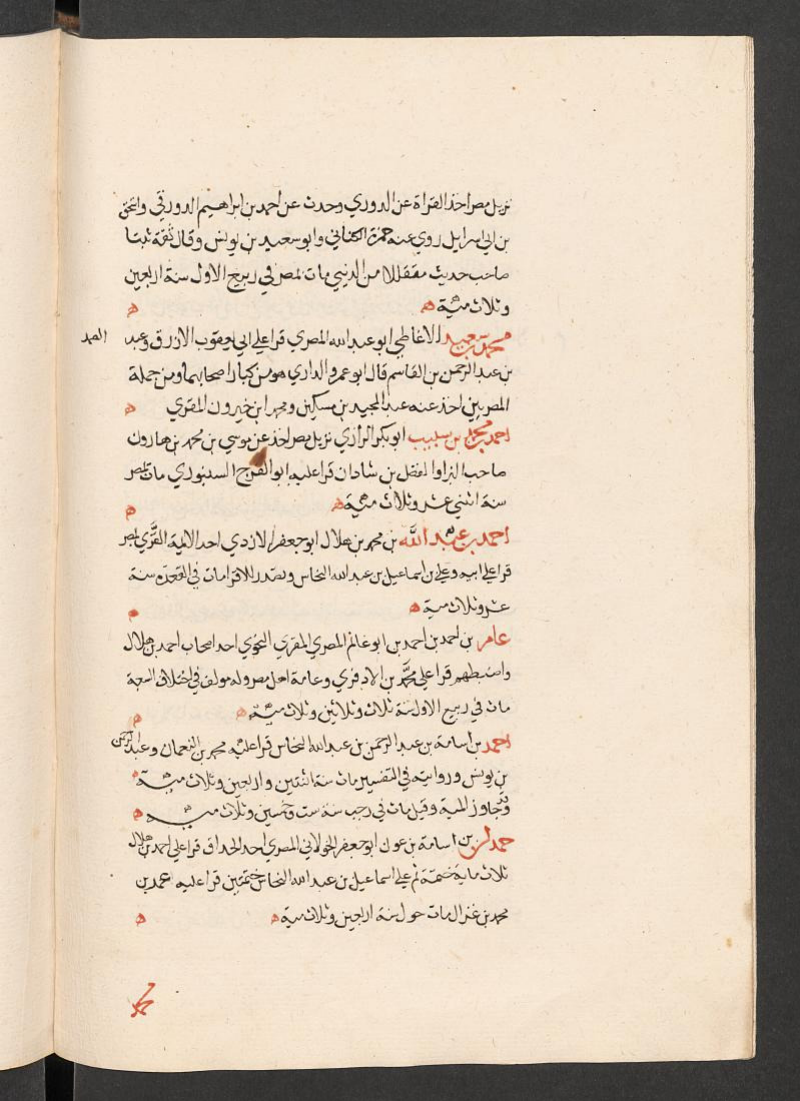 نزيل مصر اخذ القراة عن الدوري وحدث عن احمد بن ابراهيم الدورقي واسحق
بن ابي اسرايل روي عنه حمزة الكناني وابو سعيد بن يونس وقال ثقة ثبتا
صاحب حديث متقللا من الدنيي مات بمصر في ربيع الاول سنة اربعين
وثلاث مئية ه ه
محمد بن سعيد الانماطي ابو عبد الله المصري قرا علي ابي يعقوب الازرق وعبد الصمد
بن عبد الرحمن بن القاسم قال ابو عمرو الداري هو من كبار اصحابهما ومن جملة
المصريين اخذ عنه عبد المجيد بن مسكين ومحمد ابن خيرون المقري ه
احمد بن محمد بن شبيب ابو بكر الرازي نزيل مصر اخذ عن موسي بن محمد بن هارون
صاحب البزاو الفضل بن شادان قرا عليه ابو الفرج الشنبوري مات بمصر
سنة اثنتي عشر وثلاث مئية ه ه
احمد بن عبد الله بن محمد بن هلال ابو جعفر الازدي احد الايمة القري بمصر
قرا علي ابيه وعلي بن اسماعيل بن عبد الله النحاس وتصدر للاقرا مات في القعدة سنة
عشر وثلاث مية ه ه
عامر بن احمد بن احمد بن ابو غانم المصري المقري النحوي احد اصحاب احمد بن هلال
واضبطهم قرا علي محمد بن الادفوي وعامة اهل مصر وله مولف في اختلاف السبعة
مات في ربيع الاول سنة ثلاث وثلاثين وثلاث مئية ه ه
احمد بن اسامة بن عبد الرحمن بن عبد الله النحاس قرا عليه محمد بن النعمان وعبد الرحمن
بن يونس وروايته في التفسير مات سنة اثنتين واربعين وثلاث مئية ه
وقد جاوز المية وقيل مات في رجب سنة ست وخمسين وثلاث مئية ه
حمدان بن اسامة بن عون ابو جعفر الخولاني المصري احد الحذاق قرا علي احمد بن هلال
ثلاث ماية ختمة ثم علي اسماعيل بن عبد الله النحاس ختمتين قرا عليه احمد بن
محمد بن غزال مات حول سنة اربعين وثلاث مية ه ه